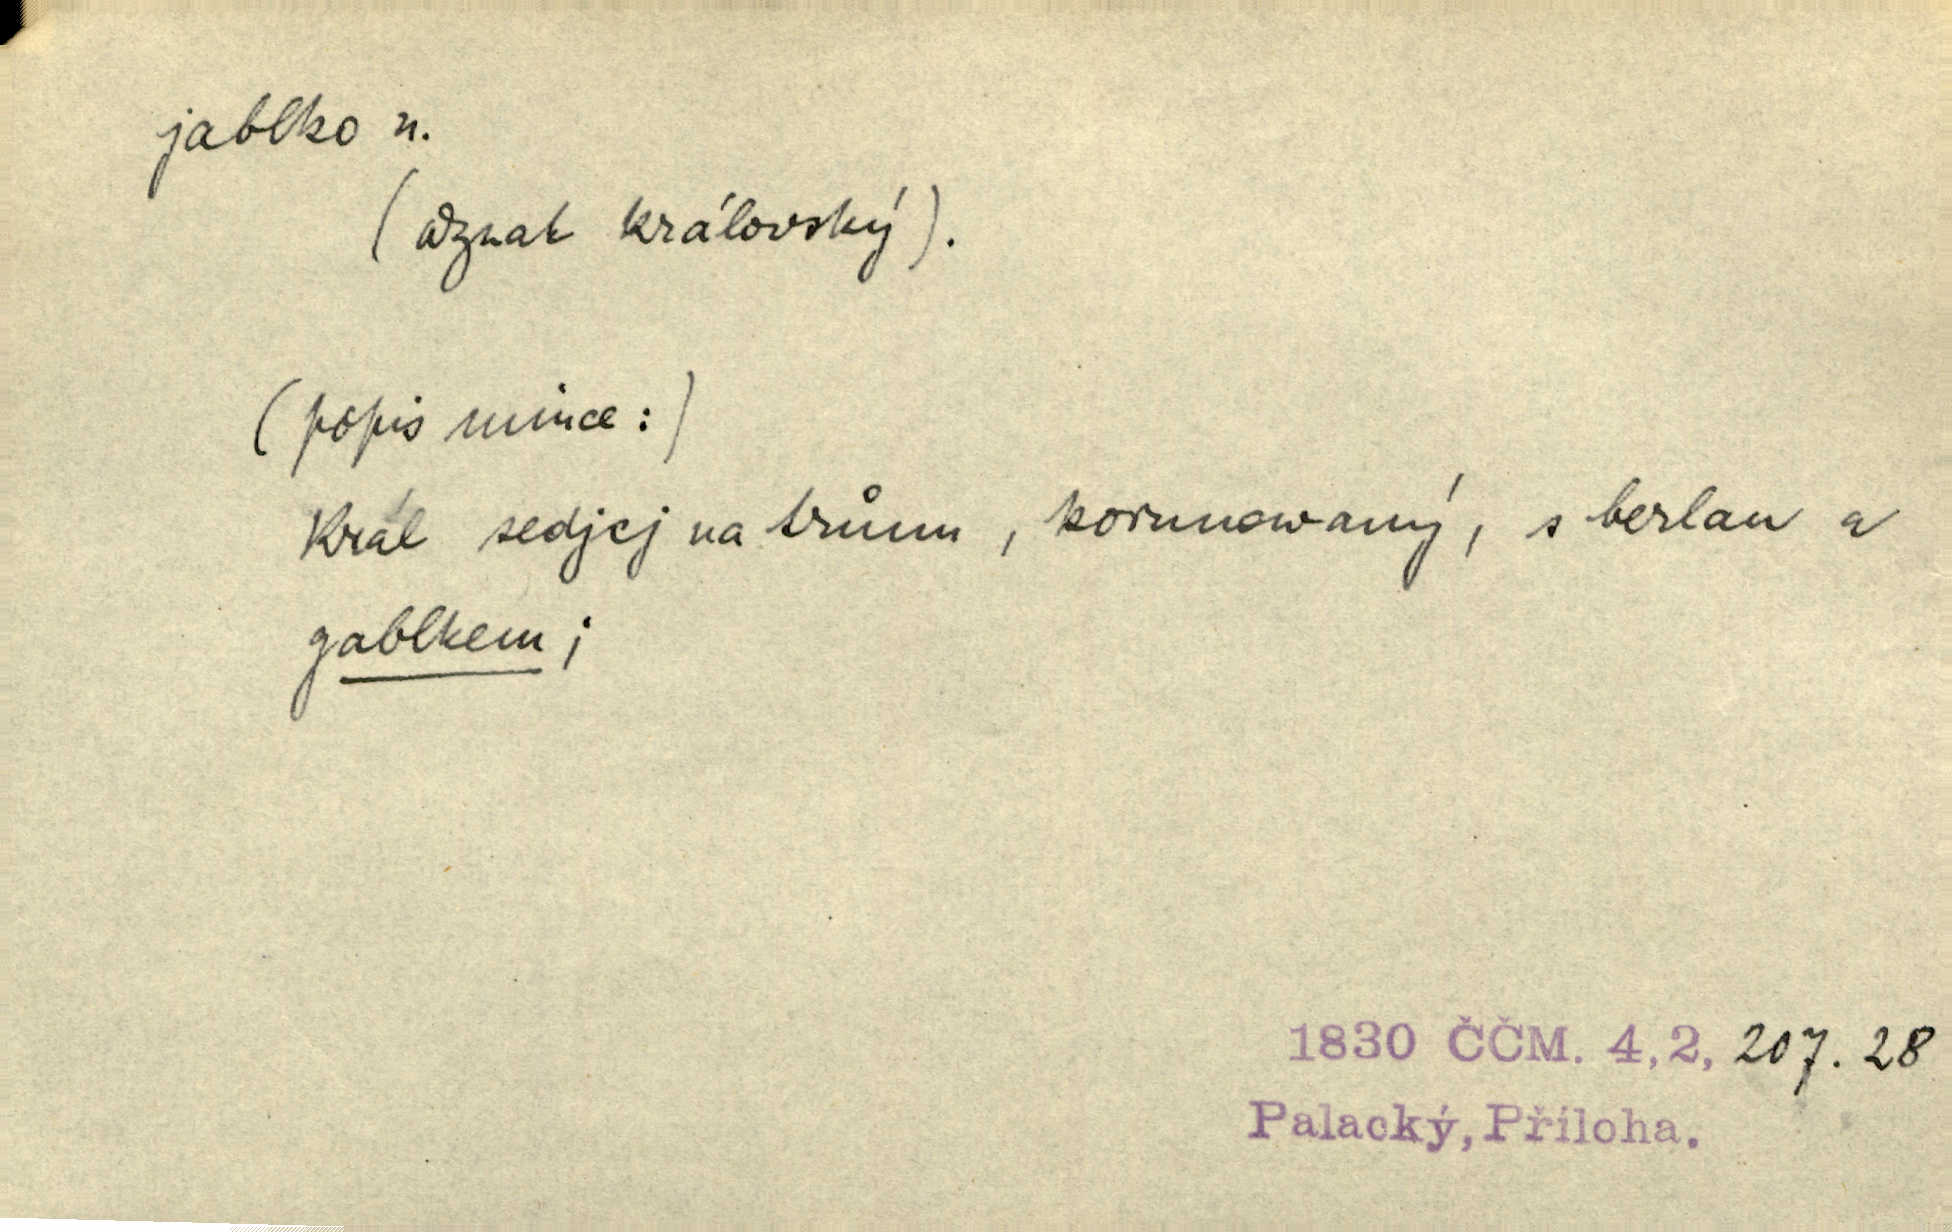 jablko n.
(odznak královský).
(popis mince:)
Král sedjcj na trůnu, korunowaný, s berlau a
gablkem;
1830 ČČM. 4,2, 207. 28
Palacký, Příloha.